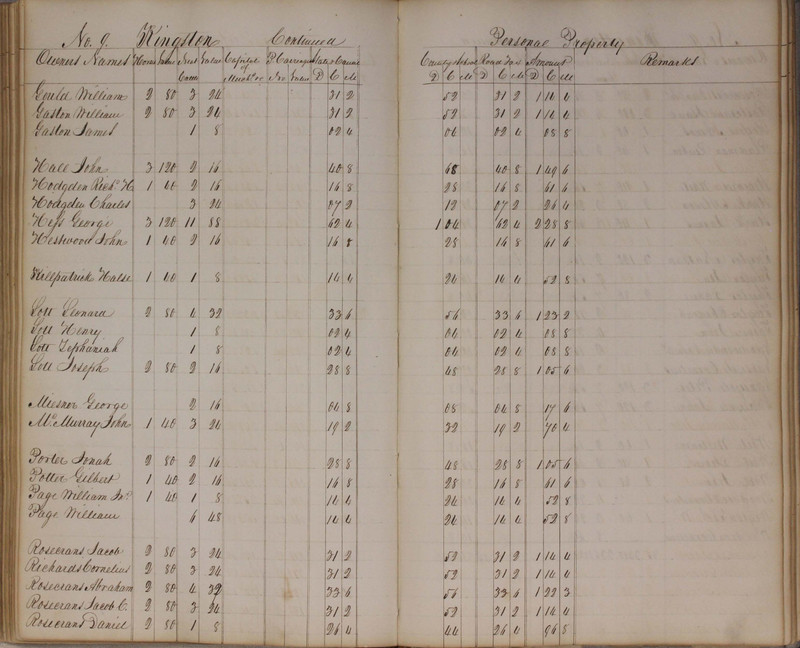 No. 9. Kingston Continued Personal Property
Owners Names Horses Value Neat Cattle Value Capital of Merch. &c P. Carriages No Value State & Canal D C M County & School D C M Road Tax D C M Amount D C M Remarks
Gould William 2 80 3 24 31 2 52 31 2 1 14 4
Gaston William 2 80 3 24 31 2 52 31 2 1 14 4
Gaston James 1 8 02 4 04 02 4 08 8
Hall John 3 120 2 16 40 8 68 40 8 1 49 6
Hodgden Rich. H. 1 40 2 16 16 8 28 16 8 61 6
Hodgden Charles 3 24 07 2 12 07 2 26 4
Hess George 3 120 11 88 62 4 1 04 62 4 2 28 8
Hestwood John 1 40 2 16 16 8 28 16 8 61 6
Killpatrick Halse 1 40 1 8 14 4 24 14 4 52 8
Lott Leonard 2 80 4 32 33 6 56 33 6 1 23 2
Lott Henry 1 8 02 4 04 02 4 08 8
Lott Zephaniah 1 8 02 4 04 02 4 08 8
Lott Joseph 2 80 2 16 28 8 48 28 8 1 05 6
Miesner George 2 16 04 8 08 04 8 17 6
McMurray John 1 40 3 24 19 2 32 19 2 70 4
Porter Jonah 2 80 2 16 28 8 48 28 8 1 05 6
Potter Gilbert 1 40 2 16 16 8 28 16 8 61 6
Page William Jr. 1 40 1 8 14 4 24 14 4 52 8
Page William 6 48 14 4 24 14 4 52 8
Rosecrans Jacob 2 80 3 24 31 2 52 31 2 1 14 4
Richards Cornelius 2 80 3 24 31 2 52 31 2 1 14 4
Rosecrans Abraham 2 80 4 32 33 6 56 33 6 1 22 3
Rosecrans Jacob C. 2 80 3 24 31 2 52 31 2 1 14 4
Rosecrans Daniel 2 80 1 8 26 4 44 26 4 96 8